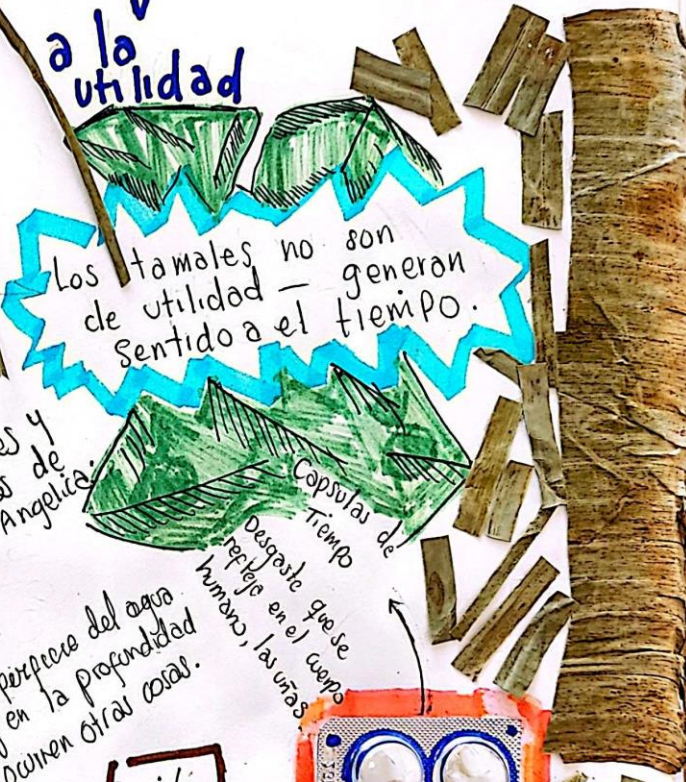 a la
utilidad
Los tamales no son
de utilidad — generan
sentido a el tiempo.
es y
s de
Angelica.
Capsulas de
Tiempo
Desgaste que se
reflejo en el cuerpo
humano, las uñas
perficie del agua
en la profundidad
ocurren otras cosas.